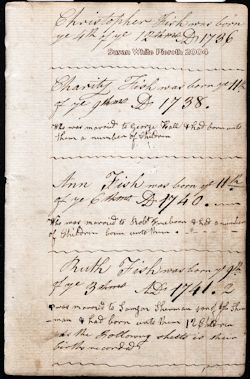 Christopher Fish was born
ye 4th of ye 12th mo D 1736
Susan White Pieroth 2004
Charity Fish was born ye 11th
of ye 9th mo D 1738.
Who was married to George Hall & had born unto
them a number of Children
Ann Fish was born ye 11th
of ye 6th mo D 1740.
Who was married to & had a number
of Children born unto them
Ruth Fish was born ye 9th
of ye 3 mo 1741.2
was married to Sherman son of
& had born unto them 12 Children
the following sheets is their
births recorded